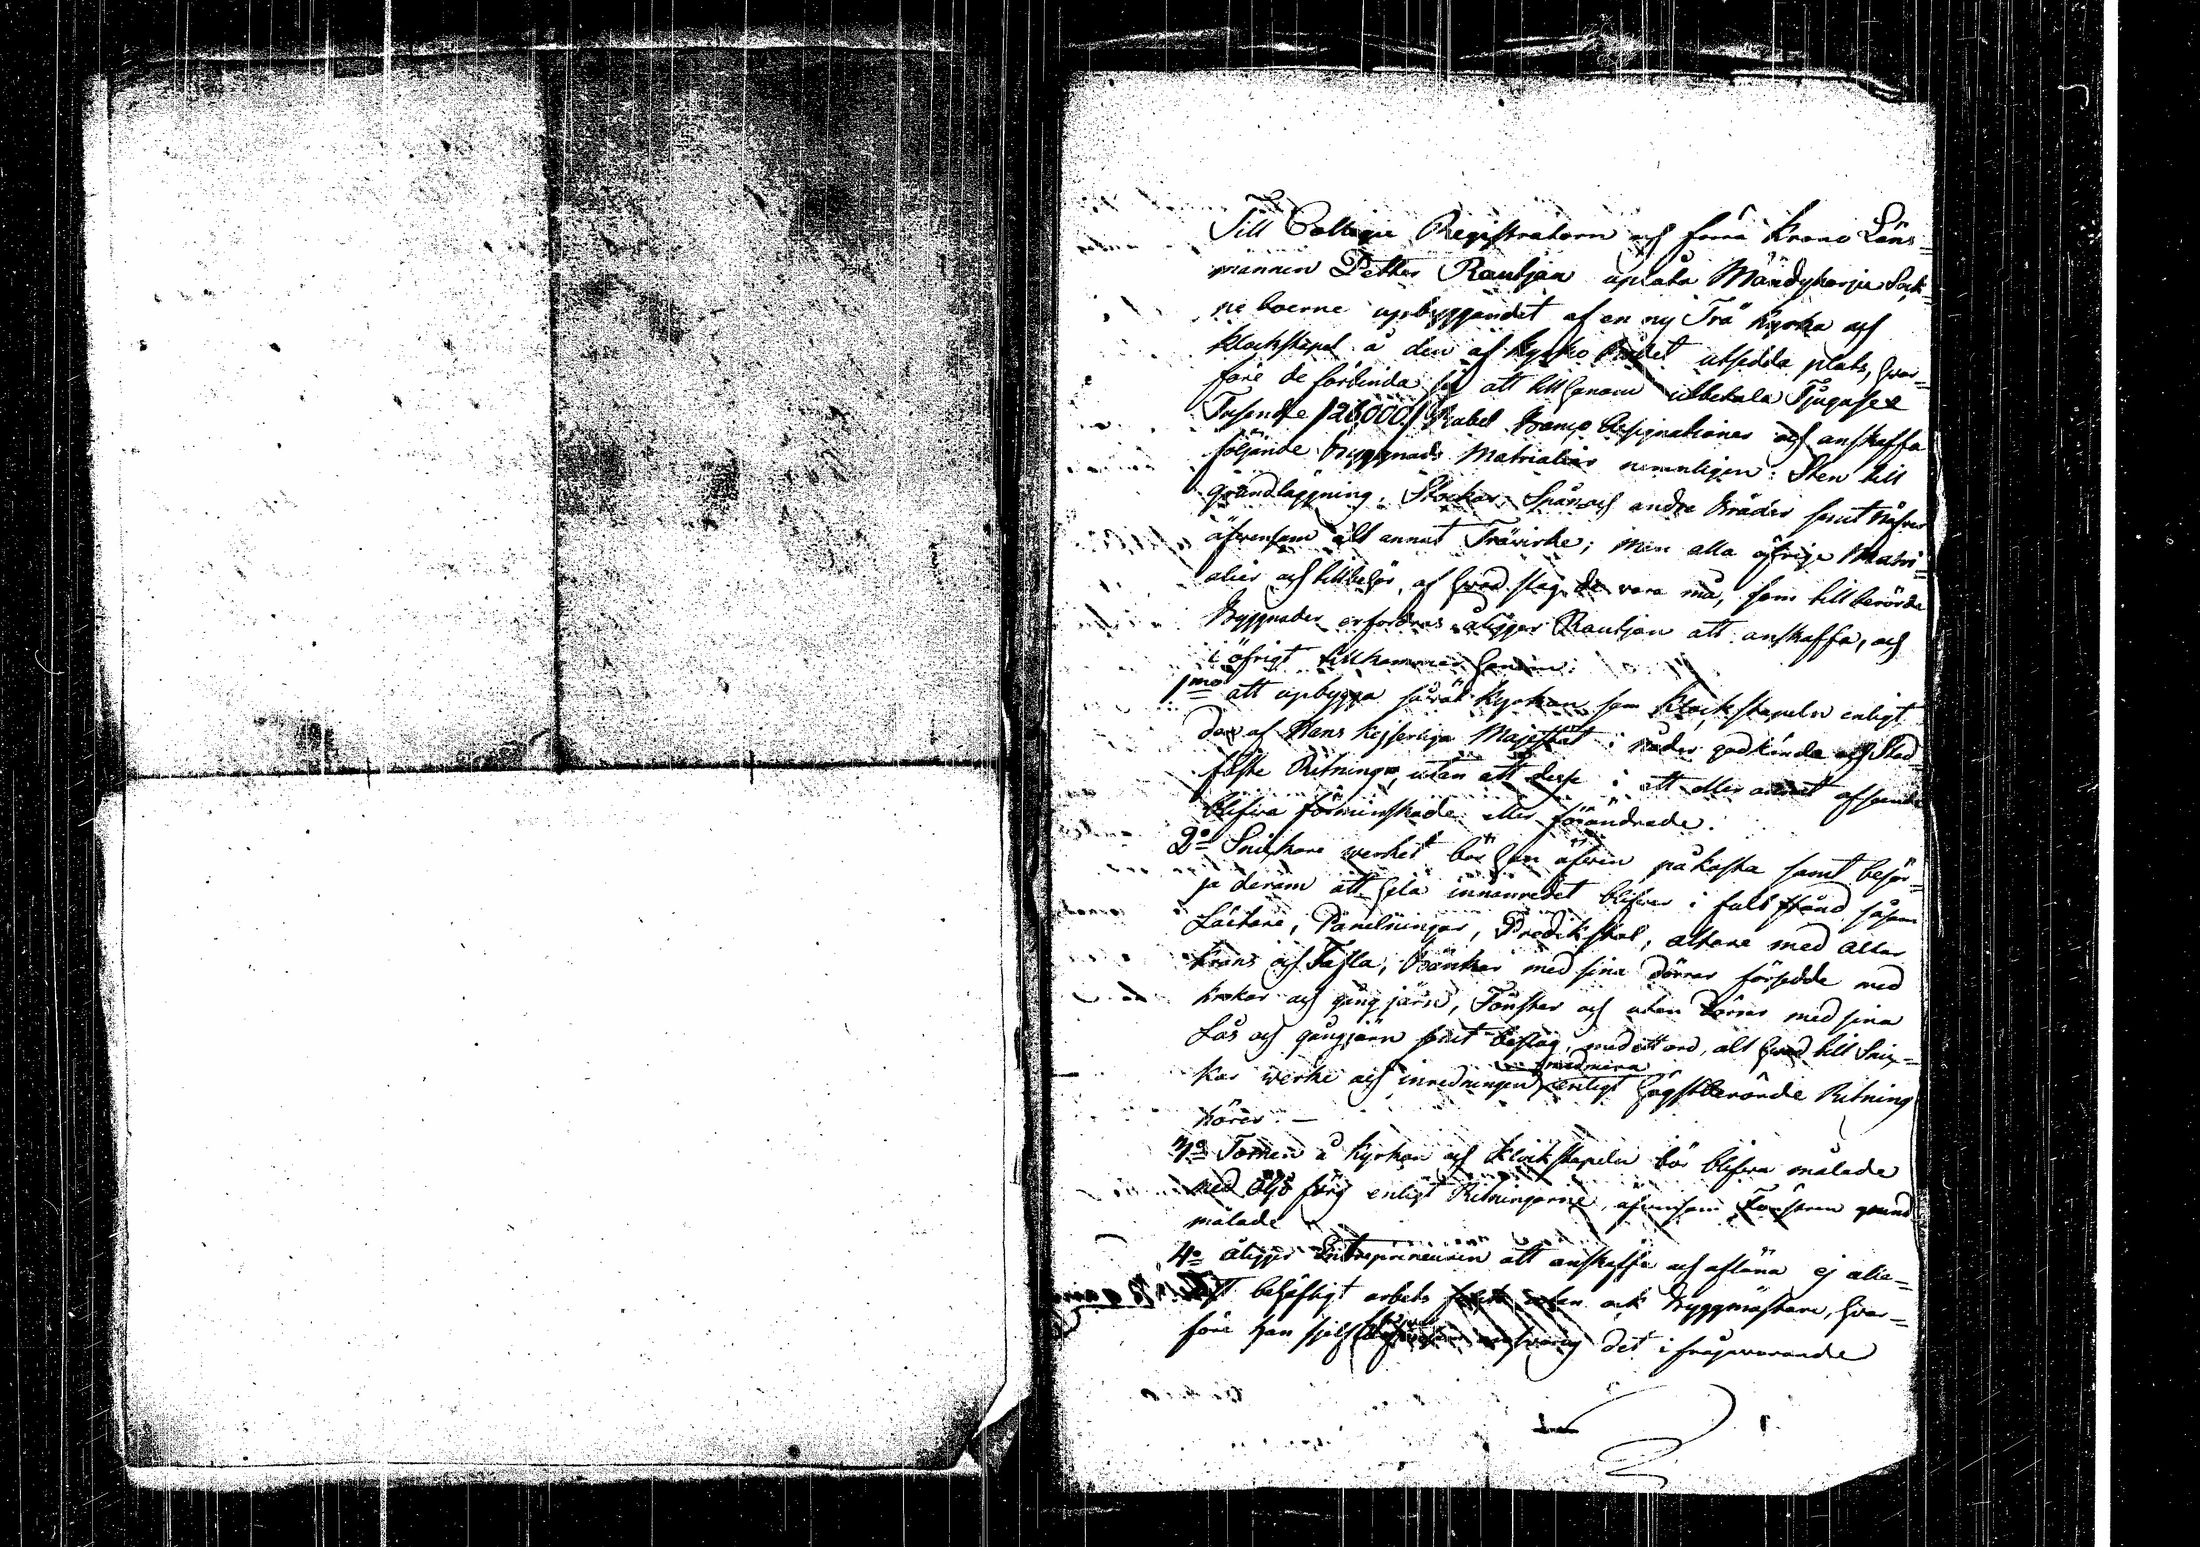 Till Collegie Registratorn och förra Krono Läns-
mannen Petter Rautjan uplåta Mändyharju Sock-
ne boerne upbyggandet af en ny Trä Kyrka och
Klockstapel å den af Kyrko Rådet utsedda plats, hvar-
före de förbinda sig att till honom utbetala Tjugusex
Tusende /26,000/ Rubel Banco Assignationer och anskaffa
följande byggnads Matrialier nemnligen: Sten till
grundläggning, Stockar, Spån och andra Bräder samt Näfver
äfvensom alt annat Trävirke; men alla öfrige Matri-
alier och tillbehör, af hvad slag de vara må, som till berörde
Byggnader erfordras åligger Rautjan att anskaffa, och
i öfrigt tillkommer honom:
1mo att upbygga såväl Kyrkan som Klockstapeln enligt
de af Hans Kejserliga Majestät i nåder godkända och Stad-
fäste Ritningar, utan att desse i ett eller annat afseende
blifva förminskade eller förändrade.
2o Snickare verket bör han äfven påkosta samt besör-
ja derom att hela innanredet blifver i fult stånd såsom
Läctare, Panelningar, Predikstol, altare med altar
krans och Tafla, Bänkar med sina dörrar försedde med
krokar och gång järn, Fönster och utan dörrar med sina
Lås och gångjärn samt beslag, med ett ord, alt hvad till Snic-
kar werke och inredningen med mera enligt högstberörde Ritning
hörer. —
3o Tornen å Kyrkan och Klockstapeln bör blifva målade
med Oljo färg enligt Ritningarne, äfvensom Fönstren grund
målade
4o åligger Entrepreneuren att anskaffa och aflöna ej alle-
nast behöfligt arbets folk utan ock Byggmästare, hvar-
före han sjelf ansvarig det ifrågavarande